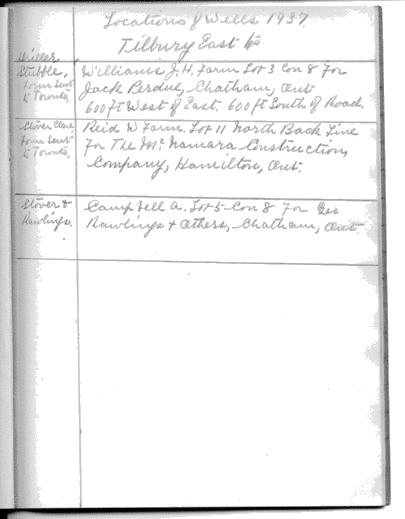 Locations of Wells 1937
Tilbury East Tp
Miller
Stubble,
Form Sent
to Toronto,
Williams J. H. Farm Lot 3 Con 8 For
Jack Perdue, Chatham, Ont
600 ft West of East. 600 ft South of Road.
Stover Clare,
Form Sent
to Toronto,
Reid W Farm Lot 11 North Back Line
For The McNamara Construction,
Company, Hamilton, Ont.
Stover &
Rawlings.
Campbell A. Lot 5 Con 8 For Geo
Rawlings + Others, Chatham, Ont.